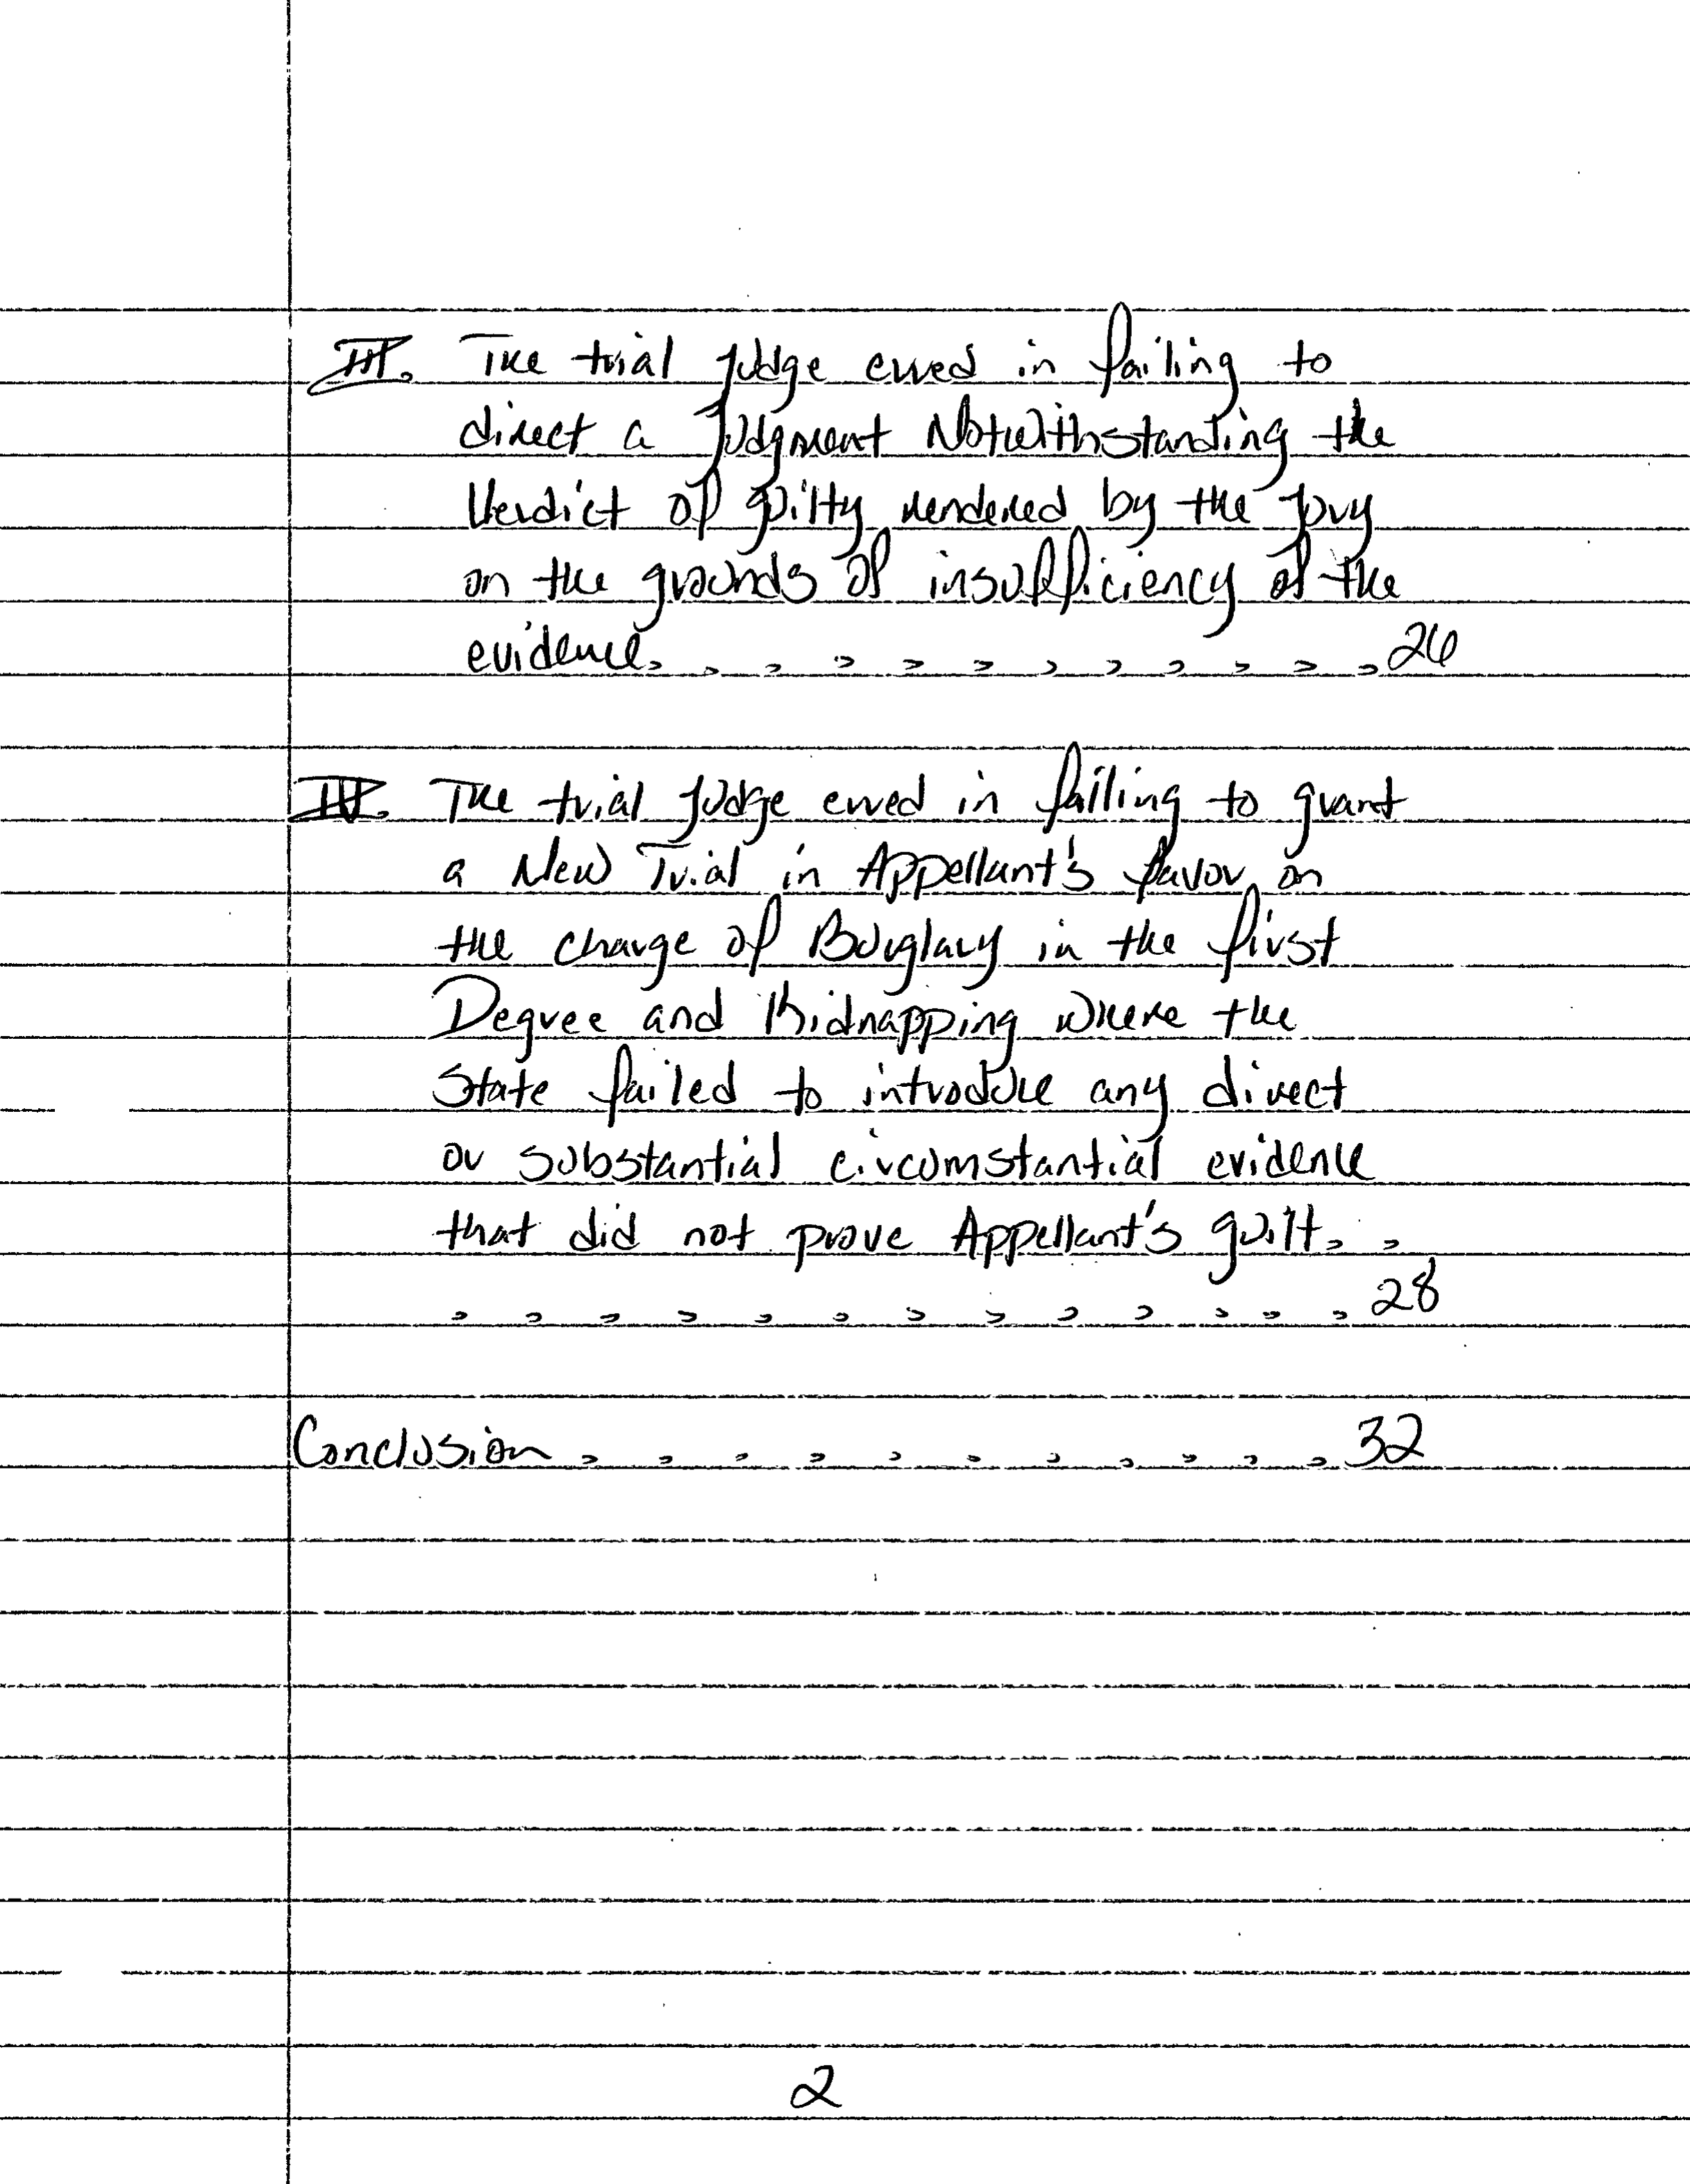 III. The trial judge erred in failing to
direct a Judgment Notwithstanding the
Verdict of guilty rendered by the jury
on the grounds of insufficiency of the
evidence. . . . . . . . . . . . 26
IV. The trial judge erred in failing to grant
a New Trial in Appellant's favor on
the charge of Burglary in the first
Degree and Kidnapping where the
State failed to introduce any direct
or substantial circumstantial evidence
that did not prove Appellant's guilt. .
. . . . . . . . . . . . . 28
Conclusion . . . . . . . . . . . 32
2